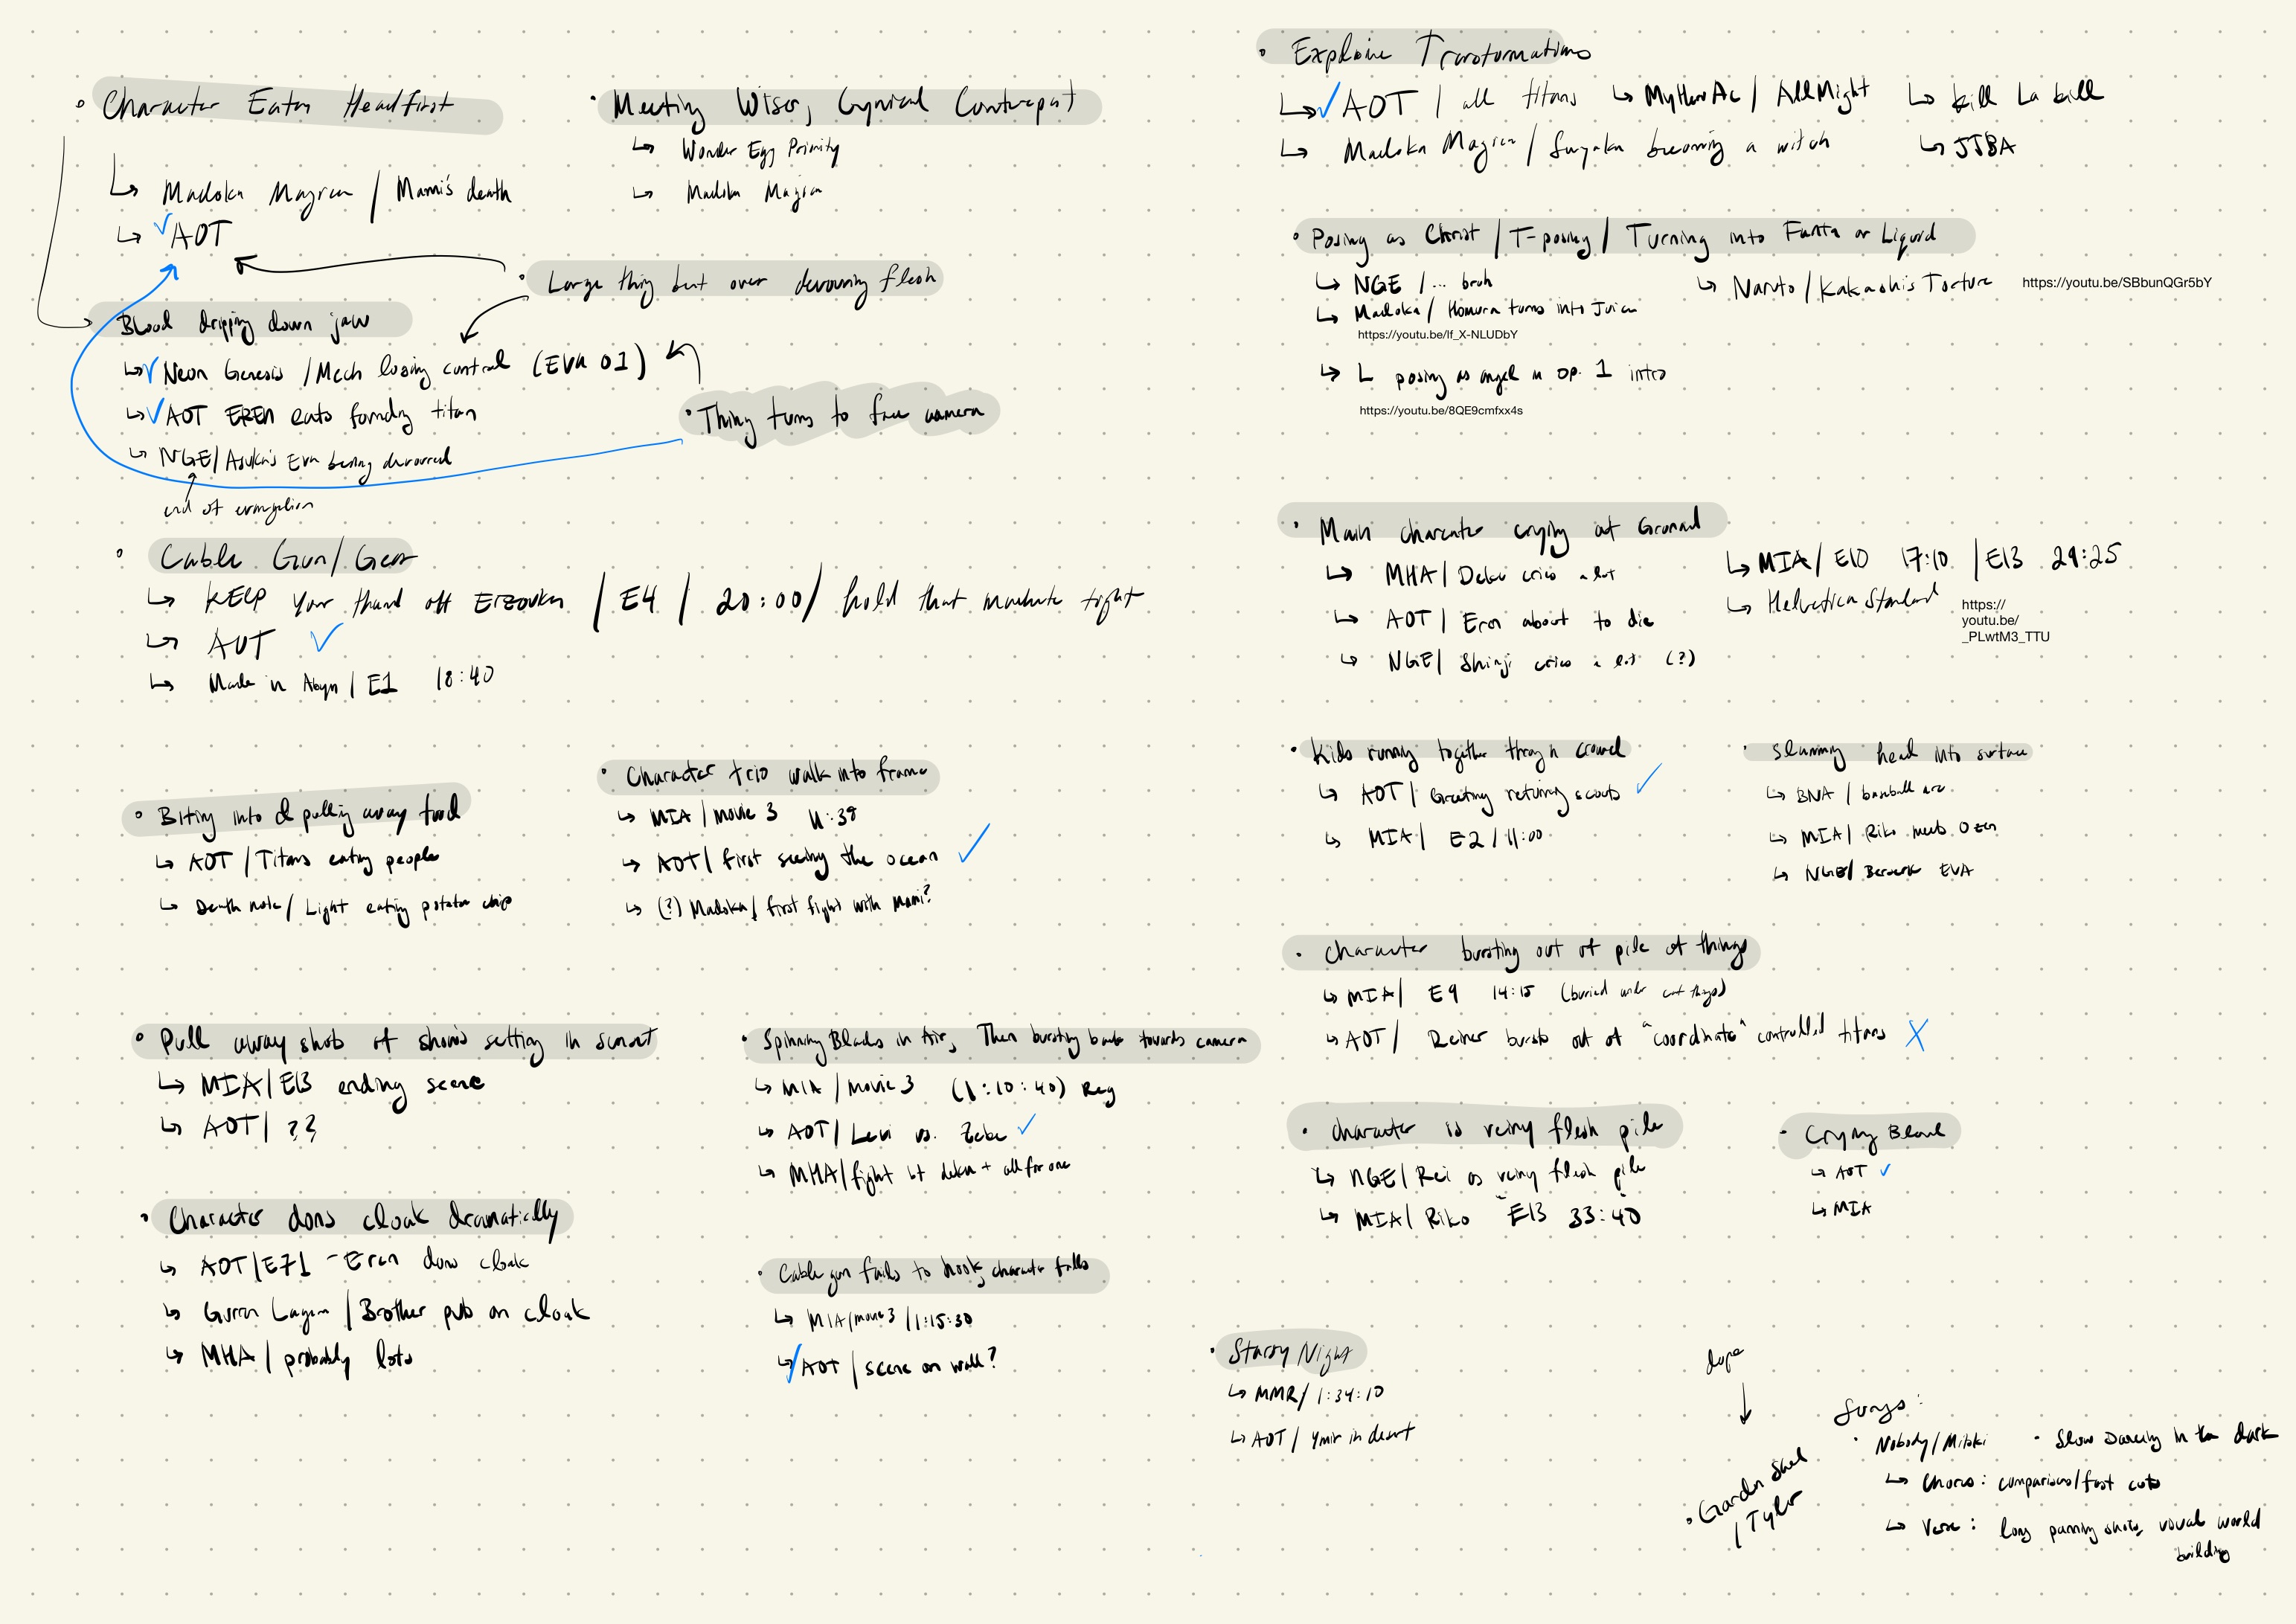 • Character Eaten Headfirst
↳ Madoka Magica / Mami's death
↳ ✓AOT
• Large thing bent over devouring flesh
Blood dripping down jaw
↳✓ Neon Genesis / Mech losing control (EVA 01)
↳✓ AOT EREN eats foundry titan
↳ NGE / Asuka's Eva being devoured
end of evangelion
• Thing turns to face camera
• Meeting Wiser, Cynical Counterpart
↳ Wonder Egg Priority
↳ Madoka Magica
• Cable Gun / Gear
↳ KEEP your hand off Eizouken / E4 / 20:00 / hold that machete tight
↳ AOT ✓
↳ Made in Abyss / E1 18:40
• Biting into & pulling away food
↳ AOT / Titans eating people
↳ Death note / Light eating potato chip
• Character trio walk into frame
↳ MIA / movie 3 11:38
↳ AOT / first seeing the ocean ✓
↳ (?) Madoka / first fight with mami?
• Pull away shot of show's setting in sunset
↳ MIA / E13 ending scene
↳ AOT / ??
• Spinning Blades in Air, Then bursting back towards camera
↳ MIA / movie 3 (1:10:40) Reg
↳ AOT / Levi vs. Zeke ✓
↳ MHA / fight bt deku + all for one
• Character dons cloak dramatically
↳ AOT / E71 - Eren dons cloak
↳ Gurren Lagann / Brother puts on cloak
↳ MHA / probably lots
• Cable gun fails to hook, character falls
↳ MIA / movie 3 / 1:15:30
↳✓ AOT / scene on wall?
• Explosive Transformations
↳✓ AOT / all titans ↳ MyHeroAc / AllMight ↳ Kill La Kill
↳ Madoka Magica / Sayaka becoming a witch ↳ JJBA
• Posing as Christ / T-posing / Turning into Fanta or Liquid
↳ NGE / ... bruh ↳ Naruto / Kakashi's Torture https://youtu.be/SBbunQGr5bY
↳ Madoka / Homura turns into Juice
https://youtu.be/lf_X-NLUDbY
↳ L posing as angel in op. 1 intro
https://youtu.be/8QE9cmfxx4s
• Main character crying at Ground
↳ MHA / Deku cries a lot
↳ AOT / Eren about to die
↳ NGE / Shinji cries a lot (?)
↳ MIA / E10 17:10 / E13 29:25
↳ Helvetica Standard https://
youtu.be/
_PLwtM3_TTU
• Kids running together through crowd
↳ AOT / Greeting returning scouts ✓
↳ MIA / E2 / 11:00
• slamming head into surface
↳ BNA / baseball arc
↳ MIA / Riko meets Ozen
↳ NGE / Berserk EVA
• Character bursting out of pile of things
↳ MIA / E9 14:15 (buried under things)
↳ AOT / Reiner bursts out of "coordinate" controlled titans X
• character is veiny flesh pile
↳ NGE / Rei as veiny flesh pile
↳ MIA / Riko E13 33:40
• Crying Blood
↳ AOT ✓
↳ MIA
• Starry Night
↳ MMR / 1:34:10
↳ AOT / Ymir in desert
dope
• Garden Shed
/ Tyler
Songs:
• Nobody / Mitski • Slow Dancing in the dark
↳ Chorus: comparisons / fast cuts
↳ Verse: long panning shots, visual world
building